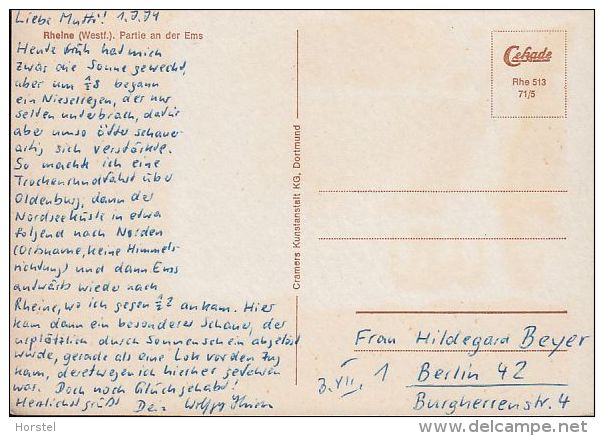 Liebe Mutti! 1.7.74
Rheine (Westf.). Partie an der Ems
Heute früh hat mich
zwar die Sonne geweckt,
aber um ½8 begann
ein Nieselregen, der nur
selten unterbrach, dafür
aber umso öfter schauer-
artig sich verstärkte.
So machte ich eine
Trockenrundfahrt über
Oldenburg, dann der
Nordseeküste in etwa
folgend nach Norden
(Ortsname, keine Himmels-
richtung) und dann Ems
aufwärts wieder nach
Rheine, wo ich gegen ½2 ankam. Hier
kam dann ein besonderer Schauer, der
urplötzlich durch Sonnenschein abgelöst
wurde, gerade als eine Lok vor den Zug
kam, deretwegen ich hierher gefahren
war. Doch noch Glück gehabt!
Herzlichst grüßt Dein Wolfgang
Cekade
Rhe 513
71/5
Cramers Kunstanstalt KG, Dortmund
Frau Hildegard Beyer
3.VII. 1 Berlin 42
Burgherrenstr. 4
Horstel
delcampe.net